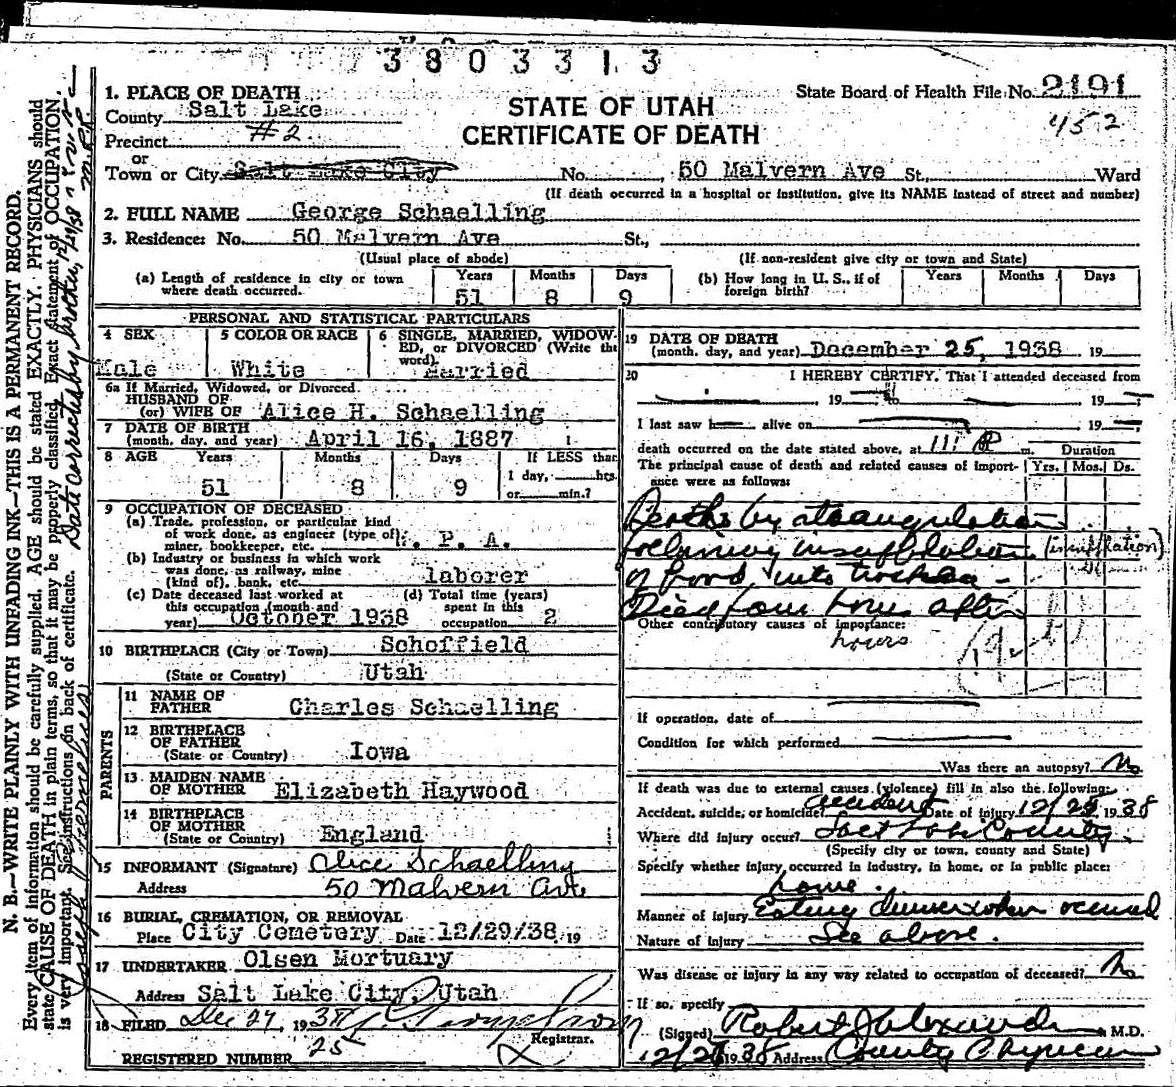 3803313
1. PLACE OF DEATH
State Board of Health File No. 2191
County Salt Lake
STATE OF UTAH
452
Precinct #2
CERTIFICATE OF DEATH
or
Town or City Salt Lake City No. 50 Malvern Ave St., Ward
(If death occurred in a hospital or institution, give its NAME instead of street and number)
2. FULL NAME George Schaelling
3. Residence: No. 50 Malvern Ave St.,
(Usual place of abode) (If non-resident give city or town and State)
(a) Length of residence in city or town where death occurred. Years 51 Months 8 Days 9
(b) How long in U. S., if of foreign birth? Years Months Days
PERSONAL AND STATISTICAL PARTICULARS
4 SEX Male
5 COLOR OR RACE White
6 SINGLE, MARRIED, WIDOWED, or DIVORCED (Write the word) Married
6a If Married, Widowed, or Divorced
HUSBAND OF
(or) WIFE OF Alice H. Schaelling
7 DATE OF BIRTH
(month, day, and year) April 16, 1887
8 AGE Years 51 Months 8 Days 9 If LESS than 1 day, hrs. or min.?
9 OCCUPATION OF DECEASED
(a) Trade, profession, or particular kind
of work done, as engineer (type of)
miner, bookkeeper, etc. . P. A.
(b) Industry or business in which work
was done, as railway, mine
(kind of), bank, etc. laborer
(c) Date deceased last worked at
this occupation (month and
year) October 1938
(d) Total time (years)
spent in this
occupation 2
10 BIRTHPLACE (City or Town) Schoffield
(State or Country) Utah
PARENTS
11 NAME OF
FATHER Charles Schaelling
12 BIRTHPLACE
OF FATHER
(State or Country) Iowa
13 MAIDEN NAME
OF MOTHER Elizabeth Haywood
14 BIRTHPLACE
OF MOTHER
(State or Country) England
15 INFORMANT (Signature) Alice Schaelling
Address 50 Malvern Ave.
16 BURIAL, CREMATION, OR REMOVAL
Place City Cemetery Date 12/29/38, 19
17 UNDERTAKER Olsen Mortuary
Address Salt Lake City, Utah
18 FILED Dec 27, 1938
Registrar.
REGISTERED NUMBER 25
19 DATE OF DEATH
(month, day, and year) December 25, 1938 19
20 I HEREBY CERTIFY, That I attended deceased from
19 to 19
I last saw h alive on 19
death occurred on the date stated above, at 11: P m. Duration
The principal cause of death and related causes of importance were as follows: Yrs. Mos. Ds.
Death by strangulation
following insufflation (insufflation)
of food into trachea -
Died four hours after
Other contributory causes of importance:
hours
If operation, date of
Condition for which performed
Was there an autopsy? No
If death was due to external causes (violence) fill in also the following:
Accident, suicide, or homicide? Accident Date of injury 12/25 1938
Where did injury occur? Salt Lake County
(Specify city or town, county and State)
Specify whether injury occurred in industry, in home, or in public place:
home.
Manner of injury Eating dinner when occurred
Nature of injury See above.
Was disease or injury in any way related to occupation of deceased? No
If so, specify
(Signed) Robert J Alexander M.D.
1938 Address County Physician
N. B.—WRITE PLAINLY WITH UNFADING INK—THIS IS A PERMANENT RECORD.
Every item of information should be carefully supplied. AGE should be stated EXACTLY. PHYSICIANS should
state CAUSE OF DEATH in plain terms, so that it may be properly classified. Exact statement of OCCUPATION
is very important. See instructions on back of certificate. Date corrected by brother,